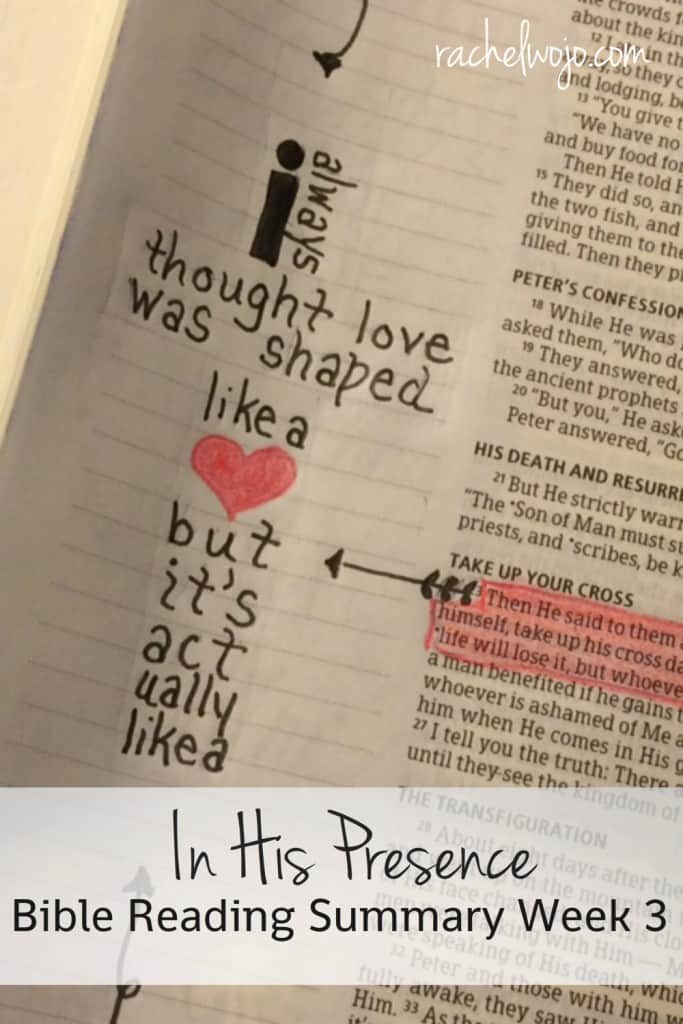 rachelwojo.com
i always
thought love
was shaped
like a
but
it's
act
ually
like a
crowds
about the
and lodging, be
13 "You give
"We have no
and buy food for
Then He told
15 They did so, an
the two fish, and
giving them to the
filled. Then they
PETER'S CONFESSION
18 While He was
asked them, "Who do
19 They answered,
the ancient prophets
20 "But you," He ask
Peter answered,
HIS DEATH AND
21 But He strictly
"The *Son of Man must
priests, and *scribes, be
TAKE UP YOUR CROSS
Then He said to them
himself, take up his cross
*life will lose it, but whoever
a man benefited if he gains
whoever is ashamed of Me
him when He comes in His
27 I tell you the truth: There
until they see the kingdom of
THE TRANSFIGURATION
28 About eight days after the
In His Presence
Bible Reading Summary Week 3
speaking of His death,
32 Peter and those with him
fully awake, they saw
Him. 33 As